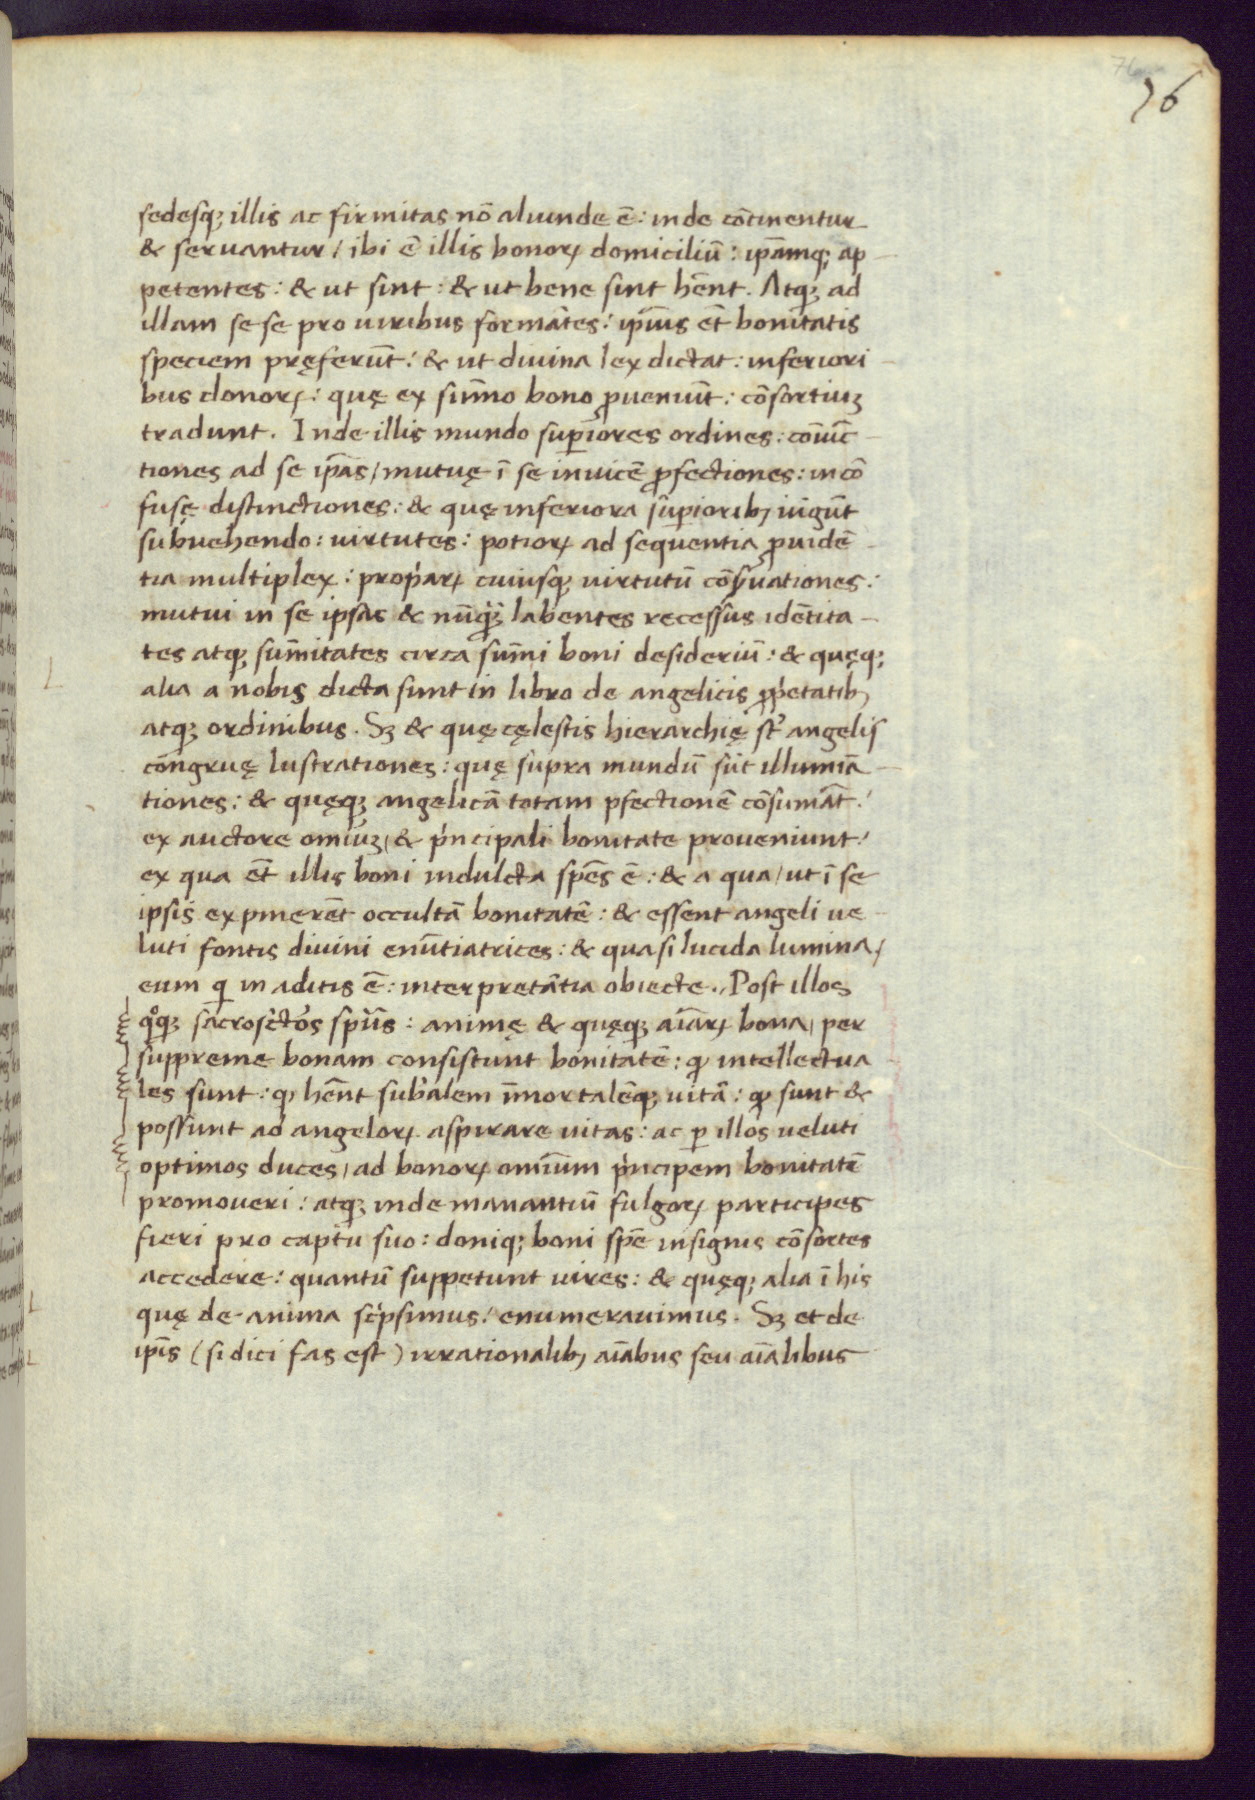 76
76
sedesq; illis ac firmitas nō aliunde ē: inde cōtinentur
& servantur / ibi ē illis bonoꝝ domiciliū: ip̄amq; ap
petentes: & ut sint: & ut bene sint hēnt. Atq; ad
illam se se pro viribus formātes: ip̄ius et̄ bonitatis
speciem pręferūt: & ut divina lex dictat: inferiori
bus donoꝝ: quę ex sūmo bono ꝓveniūt: cōsortiuȝ
tradunt. Inde illis mundo superiores ordines:
tiones ad se ip̄as / mutuę ī se invicē ꝓfectiones: incō
fusę distinctiones: & quę inferiora superiorib; iūgūt
subvehendo: virtutes: potioꝝ ad sequentia ꝓvidē
tia multiplex: propriaꝝ cuiusq; virtutū cōservationes:
mutui in se ipsas & nūq̄ labentes recessus idētita
tes atq; sūmitates circa sūmi boni desideriū: & quęq;
alia a nobis dicta sunt in libro de angelicis ꝓprietatib;
atq; ordinibus. Sȝ & quę cęlestis hierarchię st̄ angelis
congruę lustrationes: quę supra mundū sūt illuminā
tiones: & quęq; angelicā totam pfectionē cōsumāt:
ex auctore omiūȝ / & pͥncipali bonitate proveniunt:
ex qua et̄ illis boni indulcta spēs ē: & a qua / ut ī se
ipsis expmerēt occultā bonitatē: & essent angeli ve
luti fontis divini enūtiatrices: & quasi lucida lumina /
eum qͥ in aditis ē: interpretātia obiecte. Post illos
qͦq; sacrosctōs spūs: animę & quęq; aīaꝝ bona / per
suppreme bonam consistunt bonitatē: qͥ intellectua
les sunt: qͥ hēnt subalem īmortalēq; vitā: qͥ sunt &
possunt ad angeloꝝ aspirare vitas: ac ꝑ illos veluti
optimos duces / ad bonoꝝ omīum pͥncipem bonitatē
promoveri: atq; inde manantiū fulgoꝝ participes
fieri pro captu suo: doniq; boni spē insignis cōsortes
accedere: quantū suppetunt vires: & quęq; alia ī his
quę de anima scͥpsimus: enumeravimus. Sȝ et de
ip̄is (si dici fas est) irrationalib; aīabus seu aīalibus